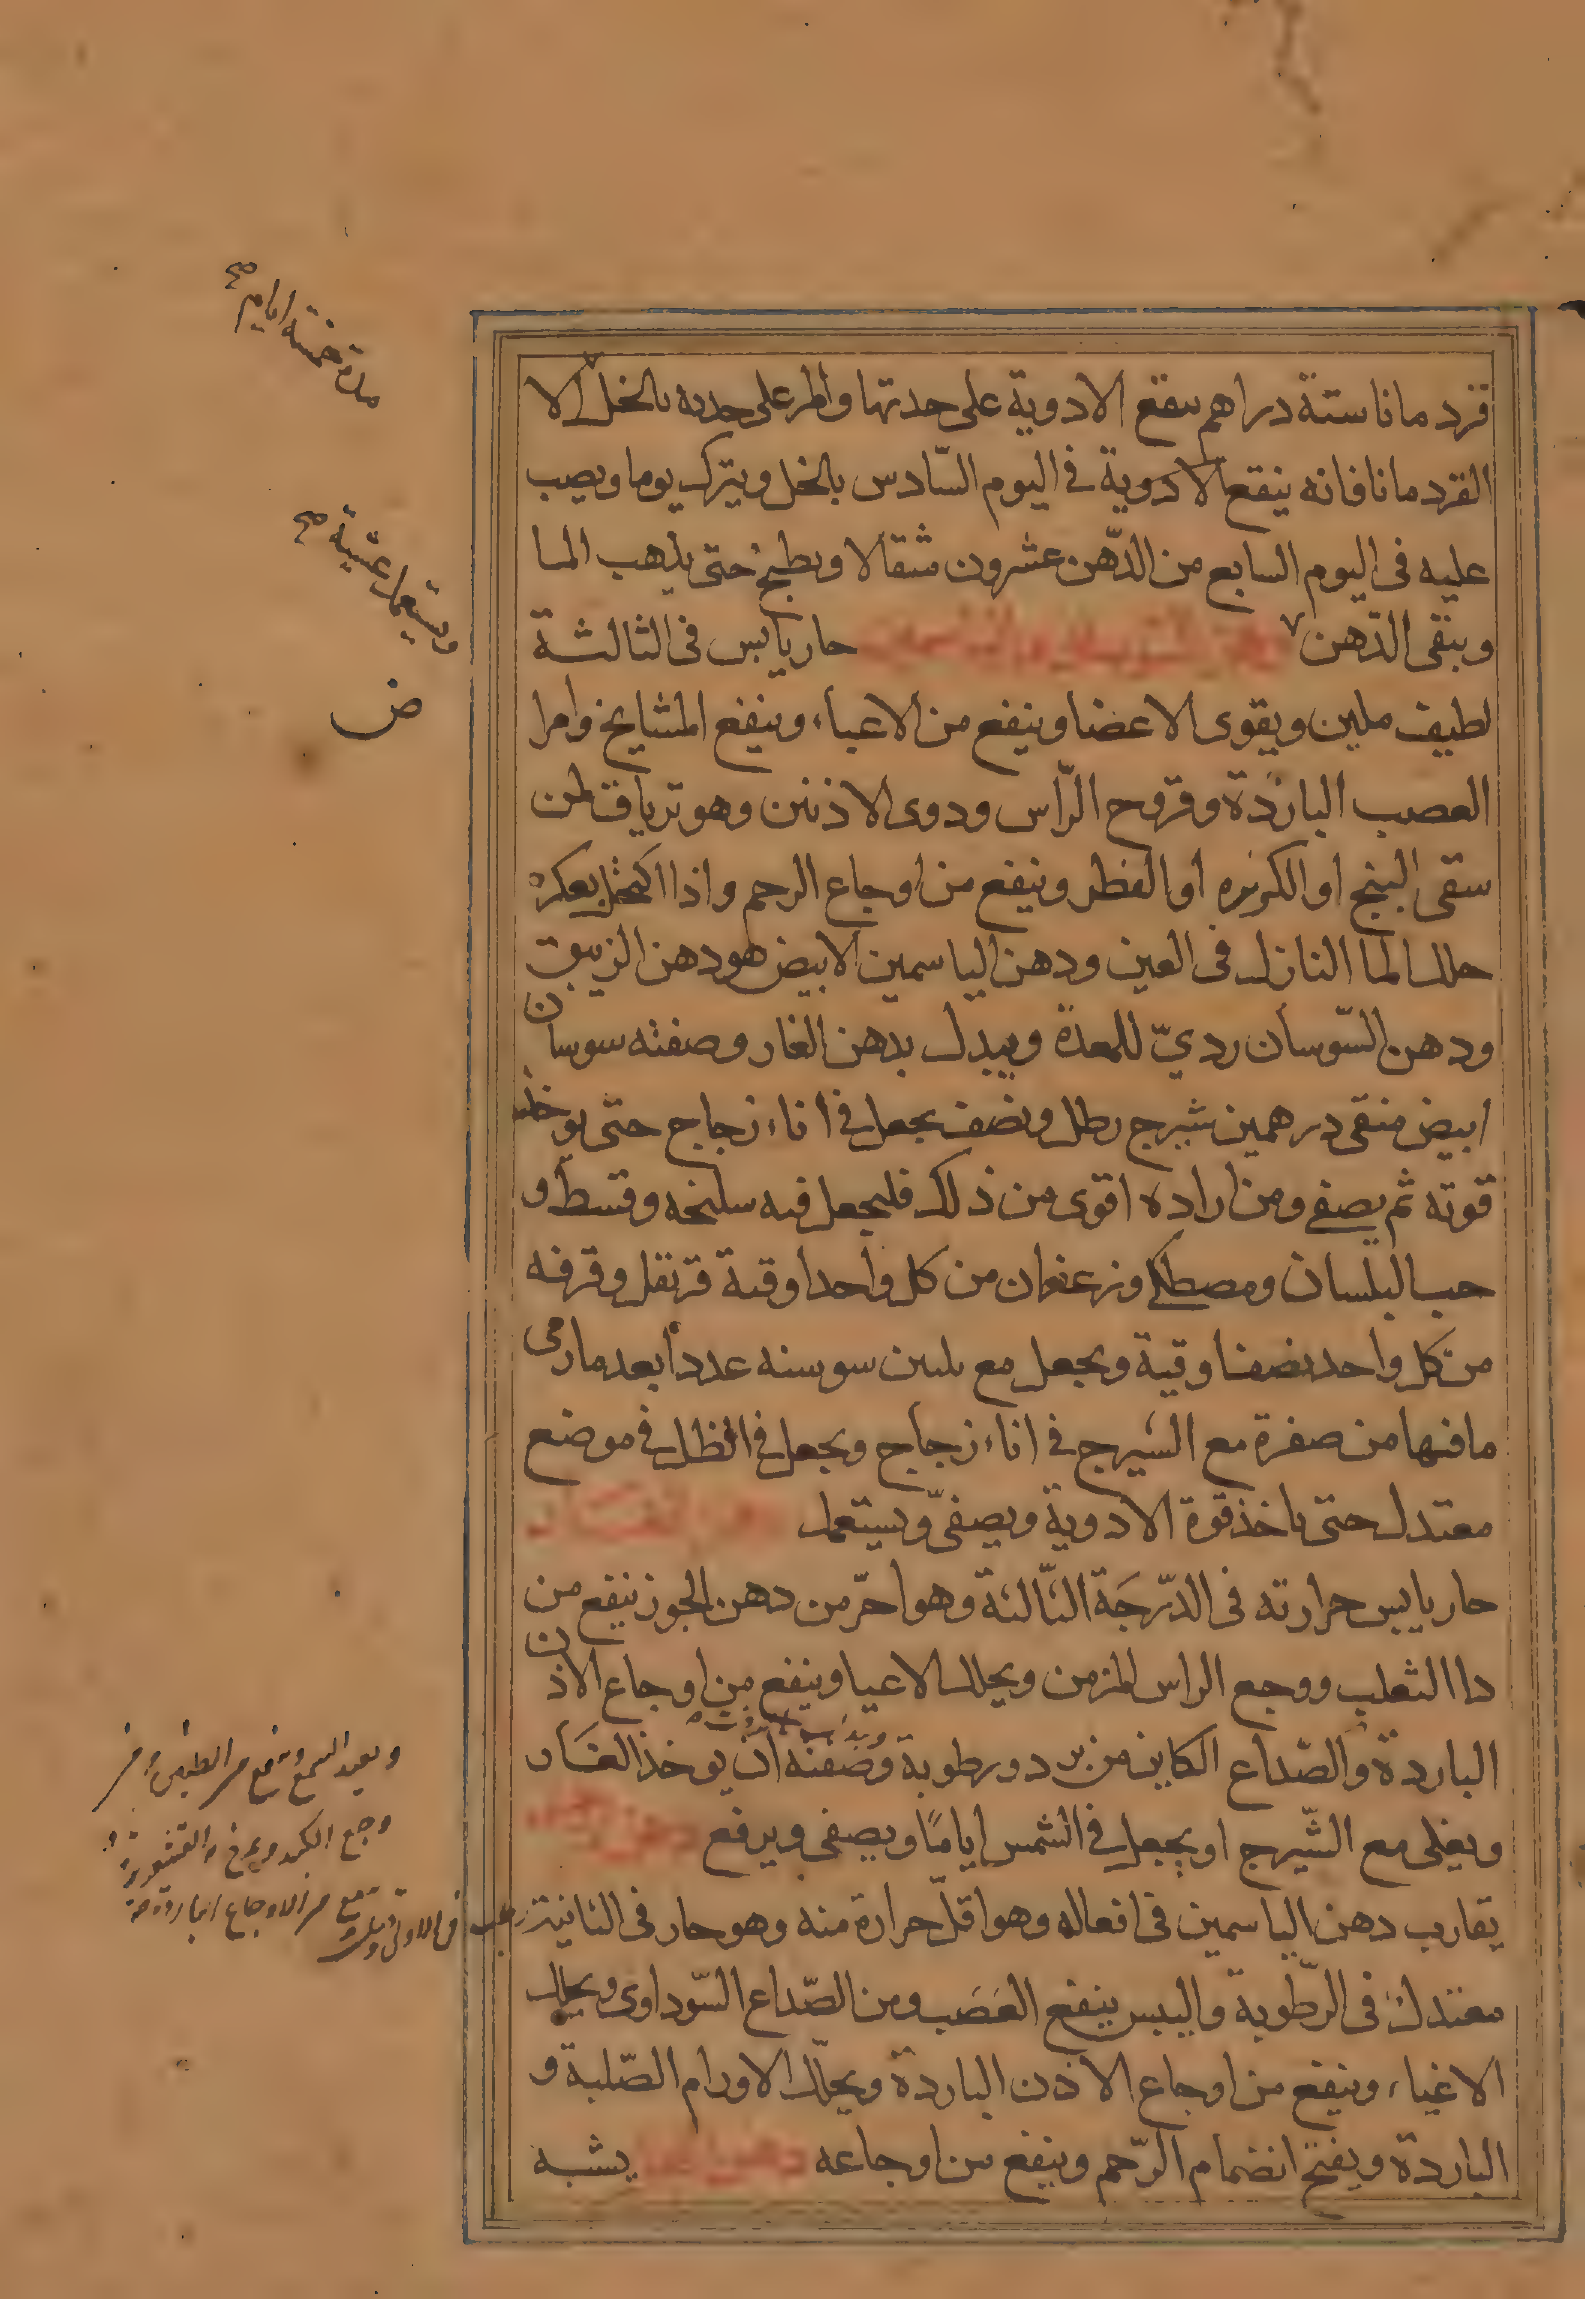 قردمانا ستة دراهم ينقع الادوية على حدتها والمر على حدته بالخل الا
القردمانا فانه ينقع الادوية فى اليوم السّادس بالخل ويترك يوما ويصب
عليه فى اليوم السابع من الدّهن عشرون مثقالا ويطبخ حتى يذهب الما
ويبقى الدّهن حار يابس فى الثالثة
لطيف ملين ويقوى الاعضا وينفع من الاعياء وينفع المشايخ وامرا
العصب الباردة وقروح الرّاس ودوى الاذنين وهو ترياق لمن
سقى البنج او الكزبره او الفطر وينفع من اوجاع الرحم واذا اكتحل بعكره
حلل الما النازل فى العين ودهن الياسمين الابيض هو دهن الزيبق
ودهن السّوسان رديّ للمعدة ويبدل بدهن الغار وصفته سوسان
ابيض منقى درهمين شيرج رطل ونصف يجعل فى اناء زجاج حتى يوخذ
قوته ثم يصفى ومن اراده اقوى من ذلك فليجعل فيه سليخه وقسط و
حب البلسان ومصطكى وزعفران من كل واحد اوقية قرنفل وقرفه
من كل واحد نصف اوقية ويجعل مع ثلثين سوسنه عدداً بعد ما رمى
ما فيها من صفرة مع الشيرج فى اناء زجاج ويجعل فى الظل فى موضع
معتدل حتى ياخذ قوة الادوية ويصفىّ ويستعمل
حار يابس حرارته فى الدّرجَة الثّالثة وهو احرّ من دهن الجوز ينفع من
دا الثعلب ووجع الراس المزمن ويحلل الاعيا وينفع من اوجاع الاذن
الباردة والصّداع الكاين من برد ورطوبة وصفته ان يوخذ الغَار
ويغلى مع الشّيرج او يجعل فى الشمس ايامًا ويصفى ويرفع
يقارب دهن الياسمين فى افعاله وهو اقلّ حرارة منه وهو حار فى الثانية
معتدل فى الرّطوبة واليبس ينفع العَصَب ومن الصّداع السّوداوى ويحلل
الاعياء وينفع من اوجاع الاذن الباردة ويحلّل الاورام الصّلبة و
الباردة ويفتح انضمام الرّحم وينفع من اوجاعه يشبه
مدة خمسة ايام صح
ويستعمل عشية صح
ض